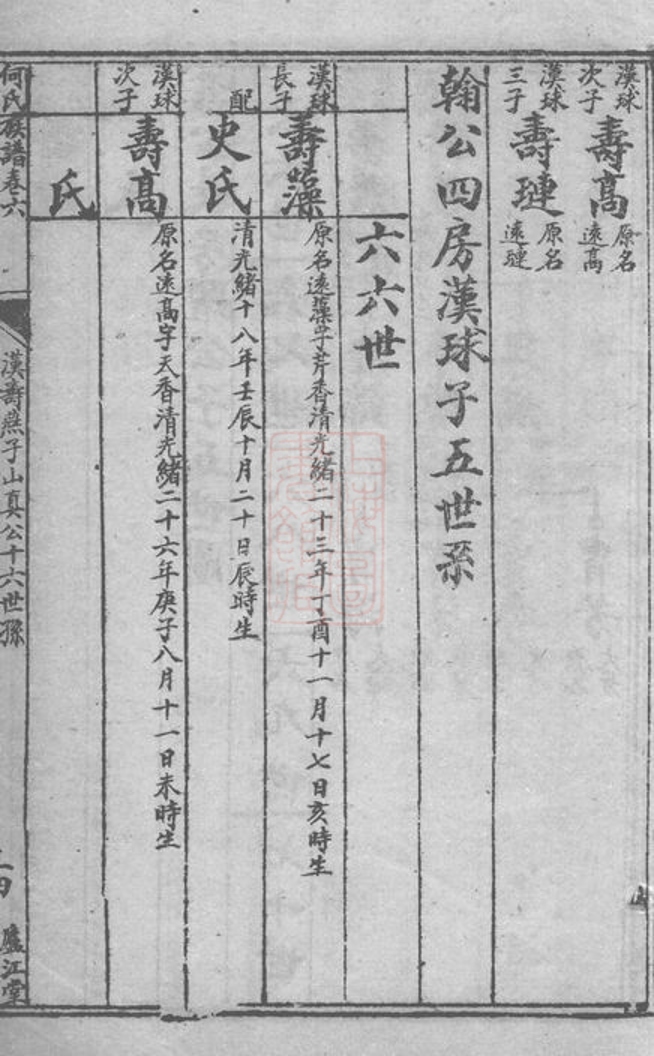 漢球次子 壽高 原名遠高
漢球三子 壽璉 原名遠璉
翰公四房漢球子五世孫
六六世
漢球長子 壽藻 原名遠藻字芹香清光緒二十三年丁酉十一月十七日亥時生
配 史氏 清光緒十八年壬辰十月二十日辰時生
漢球次子 壽高 原名遠高字天香清光緒二十六年庚子八月十一日未時生
氏
何氏族譜卷六 漢壽燕子山真公十六世孫 廬江堂